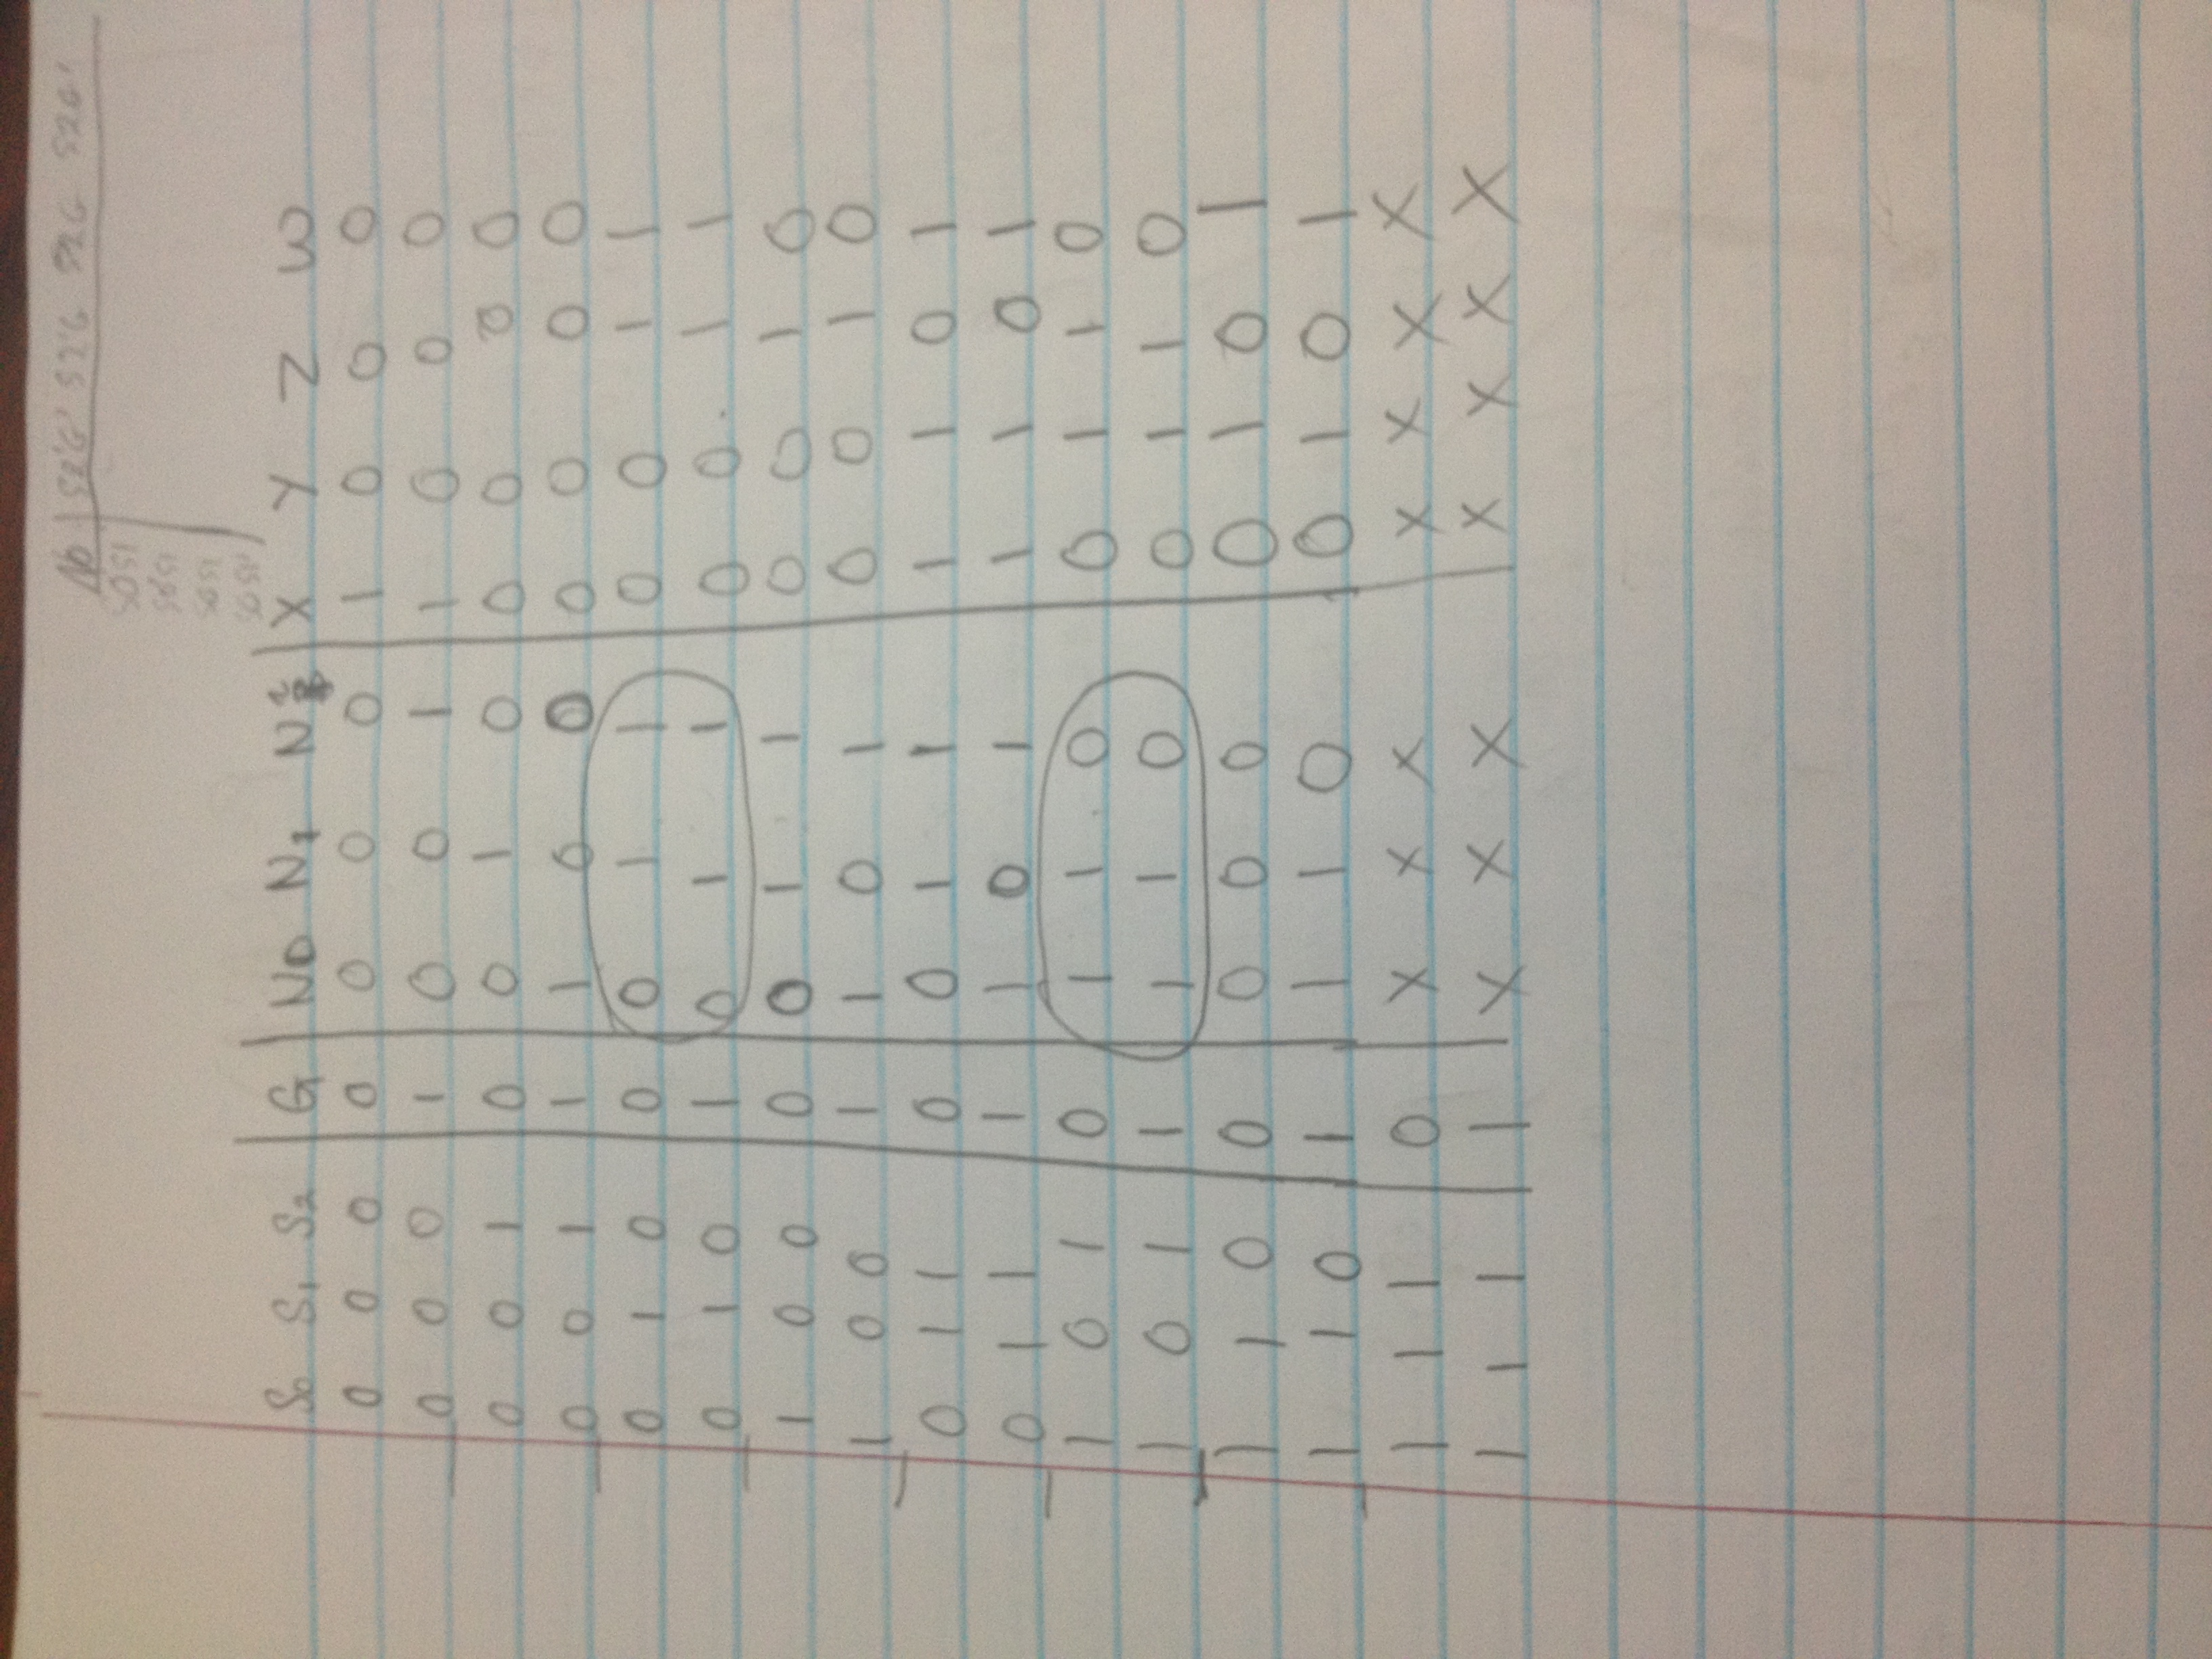 No S2'G' S2'G S2G S2G'
S0S1
S0S1
S0S1
S0 S1 S2 G N0 N1 N2 X Y Z W
0 0 0 0 0 0 0 1 0 0 0
0 0 0 1 0 0 1 1 0 0 0
0 0 1 0 0 1 0 0 0 0 0
0 0 1 1 1 0 0 0 0 0 0
0 1 0 0 0 1 1 0 0 1 1
0 1 0 1 0 1 1 0 0 1 1
1 0 0 0 0 1 1 0 0 1 0
1 0 0 1 1 0 1 0 0 1 0
0 1 1 0 0 1 1 1 1 0 1
0 1 1 1 1 0 1 1 1 0 1
1 0 1 0 1 1 0 0 1 1 0
1 0 1 1 1 1 0 0 1 1 0
1 1 0 0 0 0 0 0 1 0 1
1 1 0 1 1 1 0 0 1 0 1
1 1 1 0 X X X X X X X
1 1 1 1 X X X X X X X